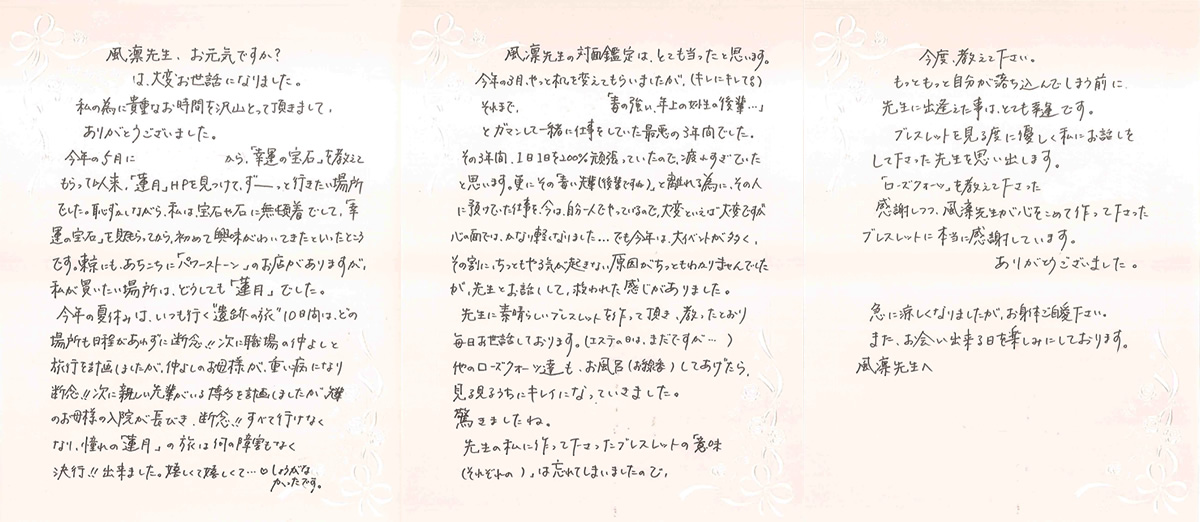 風凛先生、お元気ですか?
は、大変お世話になりました。
私の為に貴重なお時間を沢山とって頂きまして、
ありがとうございました。
今年の5月に から、「幸運の宝石」を教えて
もらって以来、「蓮月」HPを見つけて、ずーーっと行きたい場所
でした。恥ずかしながら、私は宝石や石に無頓着でして、「幸
運の宝石」を 貰ってから、初めて興味がわいてきたといったところ
です。東京にも、あちこちに「パワーストーン」のお店がありますが、
私が買いたい場所は、どうしても「蓮月」でした。
今年の夏休みは、いつも行く"遺跡の旅"10日間は、どの
場所も日程があわずに断念!!次に職場の仲よしと
旅行を計画しましたが、仲よしのお母様が、重い病になり
断念!!次に親しい先輩がいる博多を計画しましたが 先輩
のお母様の入院が長びき、断念!!すべて行けなく
なり、憧れの「蓮月」の旅は何の障害もなく
決行!!出来ました。嬉しくて嬉しくて…♡しょうがな
かったです。
風凛先生の対面鑑定は、とても当ったと思います。
今年の3月、やっと机を変えてもらいましたが、(キレにキレても)
それまで、 「毒の強い、年上の女性の後輩…」
とガマンして一緒に仕事をしていた最悪の3年間でした。
その3年間、1日1日を200%頑張っていたので、疲れすぎていた
と思います。更にその「毒い先輩(後輩ですね)」と離れる為に、その人
に預けていた仕事を、今は、自分一人でやっているので、大変といえば大変ですが
心の面では、かなり軽くなりました…でも今年は、大イベントが多く、
その割に、ちっともやる気が起きない原因がちっともわかりませんでした
が、先生とお話しして、救われた感じがありました。
先生に素晴らしいブレスレットを作って頂き、教ったとおり
毎日お世話しております。(エステの日は、まだですが… )
他のローズクォーツ達も、お風呂(お線香)してあげたら、
見る見るうちにキレイになっていきました。
驚きましたね。
先生の私に作って下さったブレスレットの「意味
(それぞれの)」は忘れてしまいましたので、
今度、教えて下さい。
もっともっと自分が落ち込んでしまう前に、
先生に出逢えた事は、とても幸運です。
ブレスレットを見る度に優しく私にお話しを
して下さった先生を思い出します。
「ローズクォーツ」を教えて下さった
感謝しつつ、風凛先生が心をこめて作って下さった
ブレスレットに本当に感謝しています。
ありがとうございました。
急に涼しくなりましたが、お身体ご自愛下さい。
また、お会い出来る日を楽しみにしております。
風凛先生へ